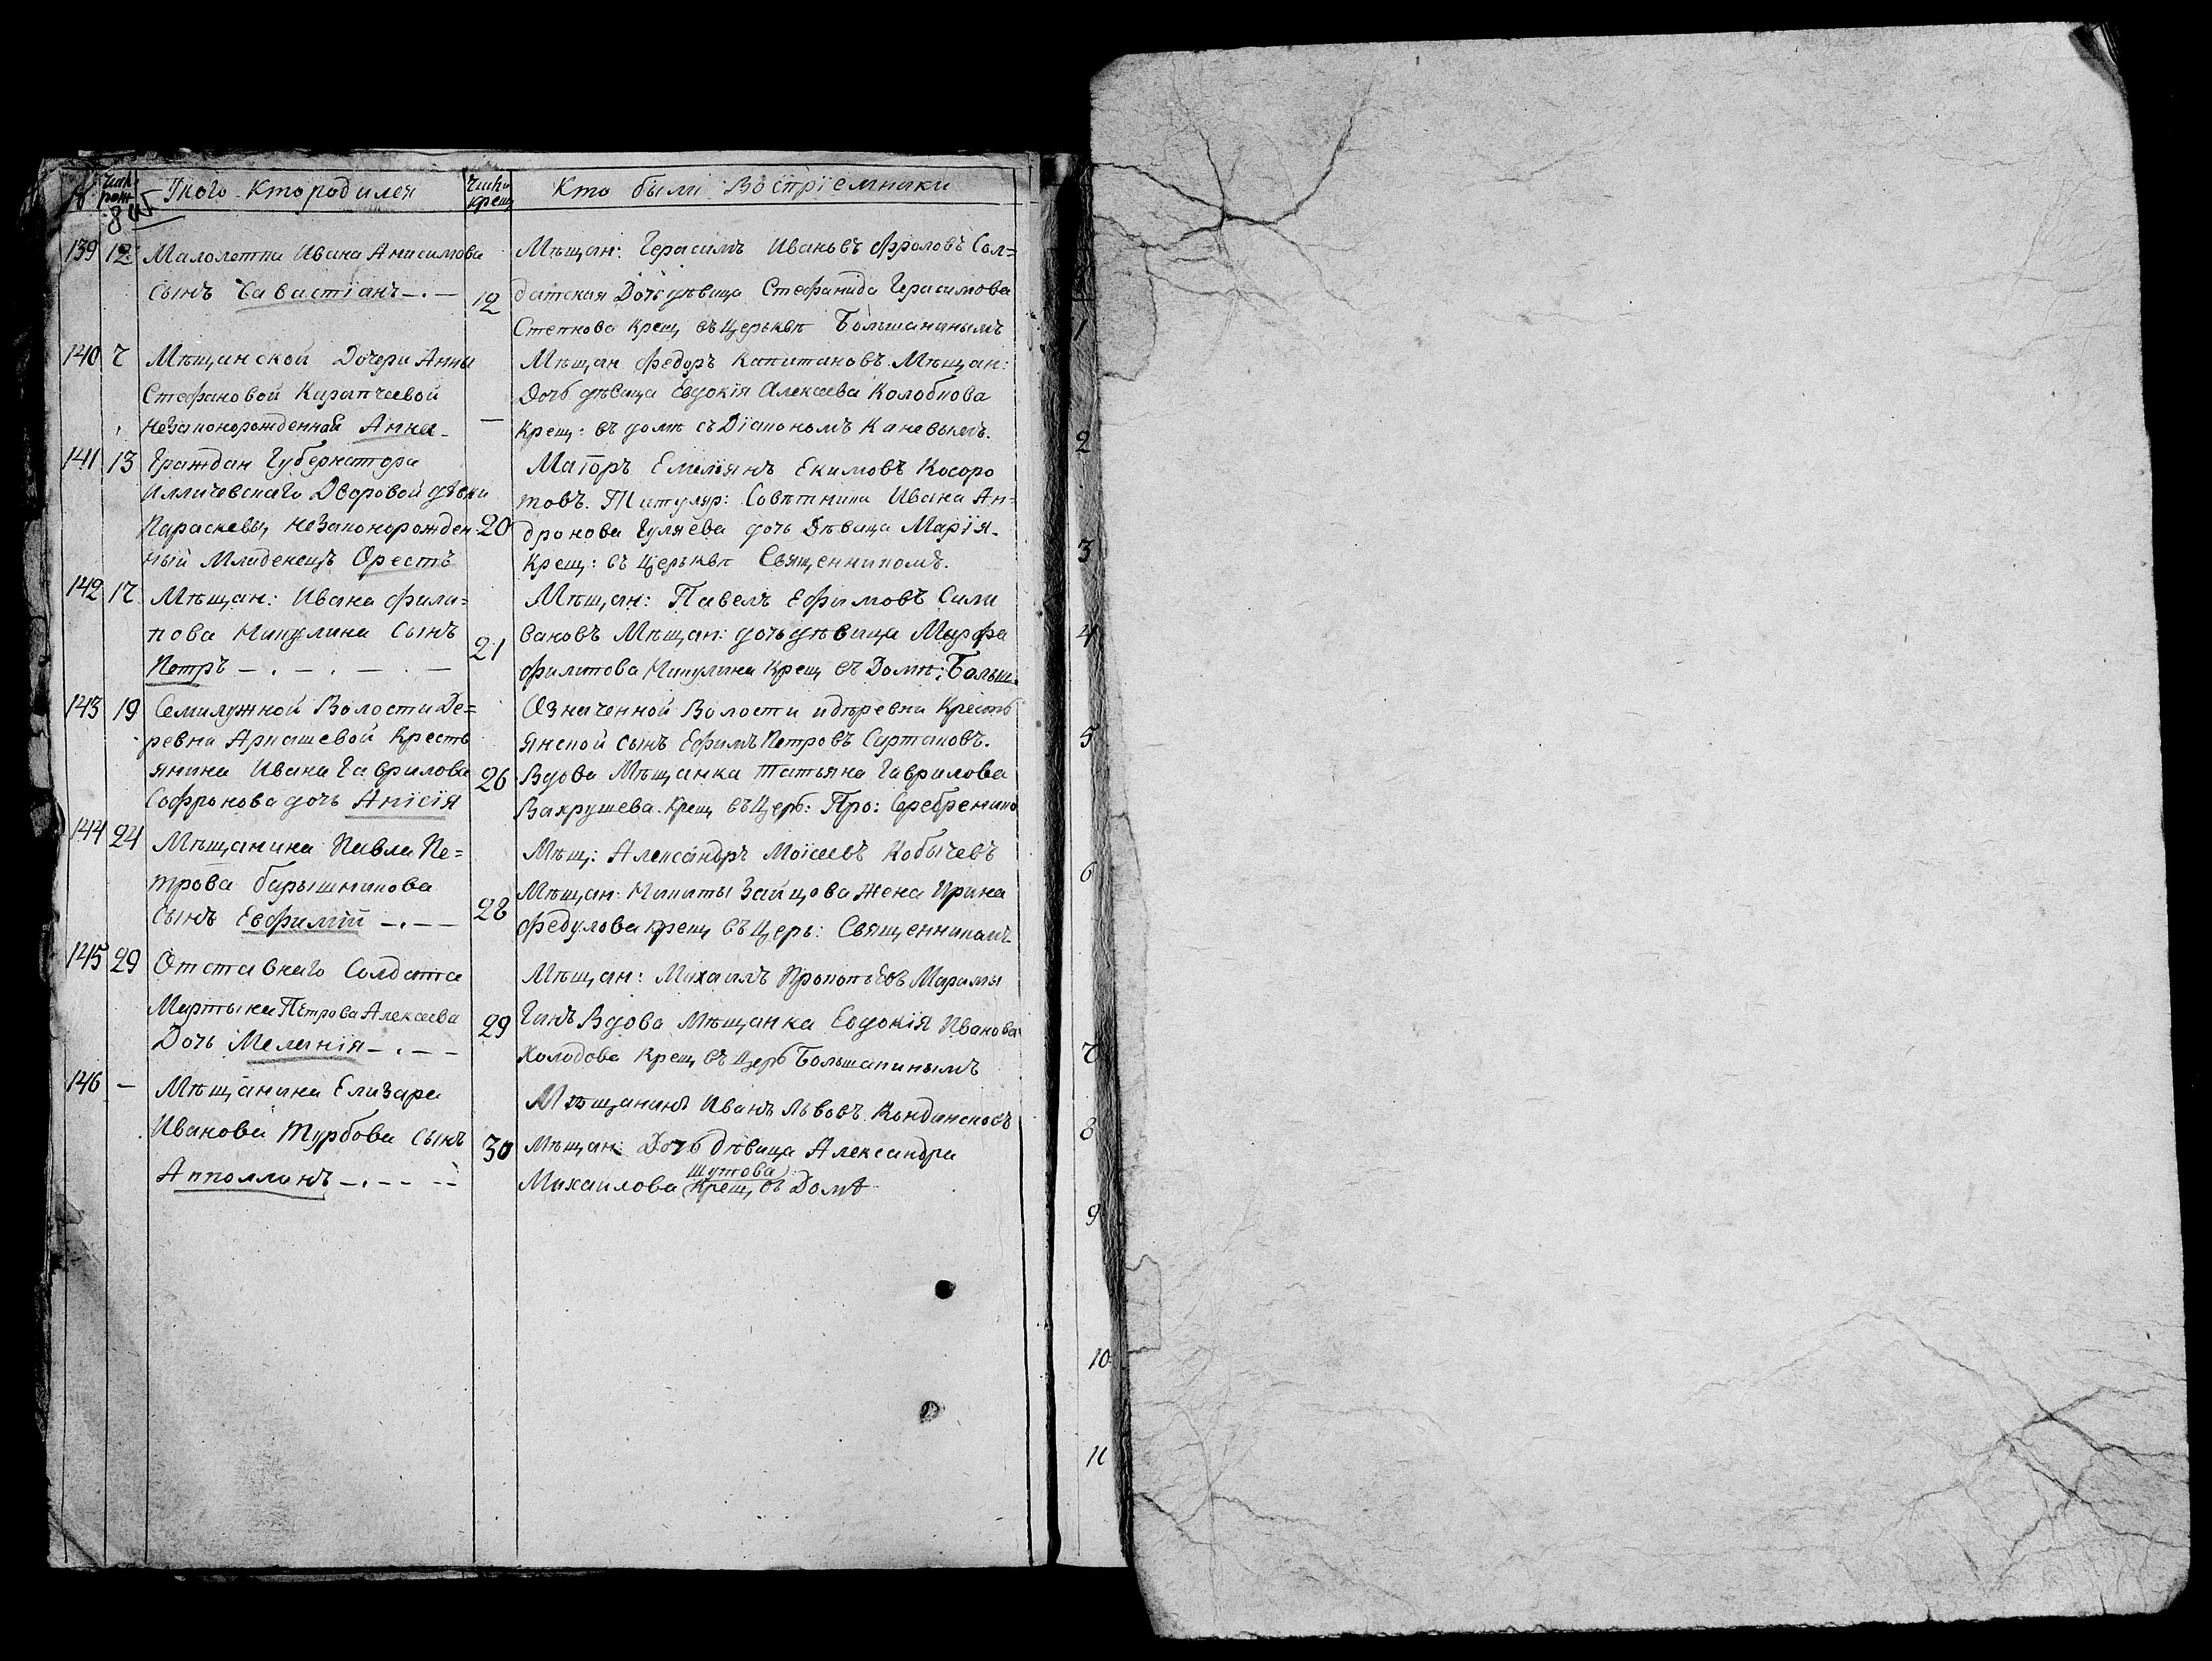 № Числ. рож. У кого кто родился Числ. крещ. Кто были Восприемники
139 12 Малолетка Ивана Анисимова Мѣщан: Герасимъ Ивановъ Фроловъ Сол=
сынъ Савастіанъ 12 датская Дочь дѣвица Стефанида Герасимова
Степнова крещ въ Церькви Большанинымъ
140 7 Мѣщанской Дочери Анны Мѣщан Федоръ Капитановъ. Мѣщан:
Стефановой Карапчеевой Дочь дѣвица Евдокія Алексеева Колобкова
незаконорожденная Анна — крещ: въ доме съ Діакономъ Каневымъ.
141 13 Граждан Губернатора Маіоръ Емельянъ Екимовъ Косоро
Илличевскаго Дворовой дѣвки товъ. Титуляр: Совѣтника Ивана Ан=
Параскевы, незаконорожден 20 дронова Гуляева дочь Дѣвица Марія.
ный Младенецъ Орестъ Крещ: въ Церькви Священникомъ.
142 17 Мѣщан: Ивана Фили= Мѣщан: Павелъ Ефимовъ Сели
пова Никулина Сынъ 21 вановъ Мѣщан: дочь дѣвица Марфа
Петръ Филипова Никулина Крещ въ Домѣ: Больш.
143 19 Семилужной Волости Де= Означенной Волости и деревни Кресть
ревни Аркашевой Кресть янской сынъ Ефимъ Петровъ Сартаковъ.
янина Ивана Гаврилова 26 Вдова Мѣщанка Татьяна Гаврилова
Софронова дочь Анісія Вахрушева. Крещ въ Церь: Про: Серебренико
144 24 Мѣщанина Павла Пе= Мѣщ: Александръ Моісеевъ Кобычевъ
трова барышникова Мѣщан: Никиты Зайцова Жена Ирина
Сынъ Евфимій 28 Федулова крещ въ Церь: Священникомъ
145 29 Отставнаго Солдата Мѣщан: Михаилъ Прокопьевъ Марамы
Мартына Петрова Алексеева 29 гинъ Вдова Мѣщанка Евдокія Иванова
Дочь Меланія Холодова Крещ въ Церь Большанинымъ
146 — Мѣщанина Елизара Мѣщанинъ Иванъ Львовъ Кондинсковъ
Иванова Турбова сынъ 30 Мѣщан: Дочь дѣвица Александра
Апполлинъ Михаилова Шутова Крещ, въ Домѣ
1
2
3
4
5
6
7
8
9
10
11